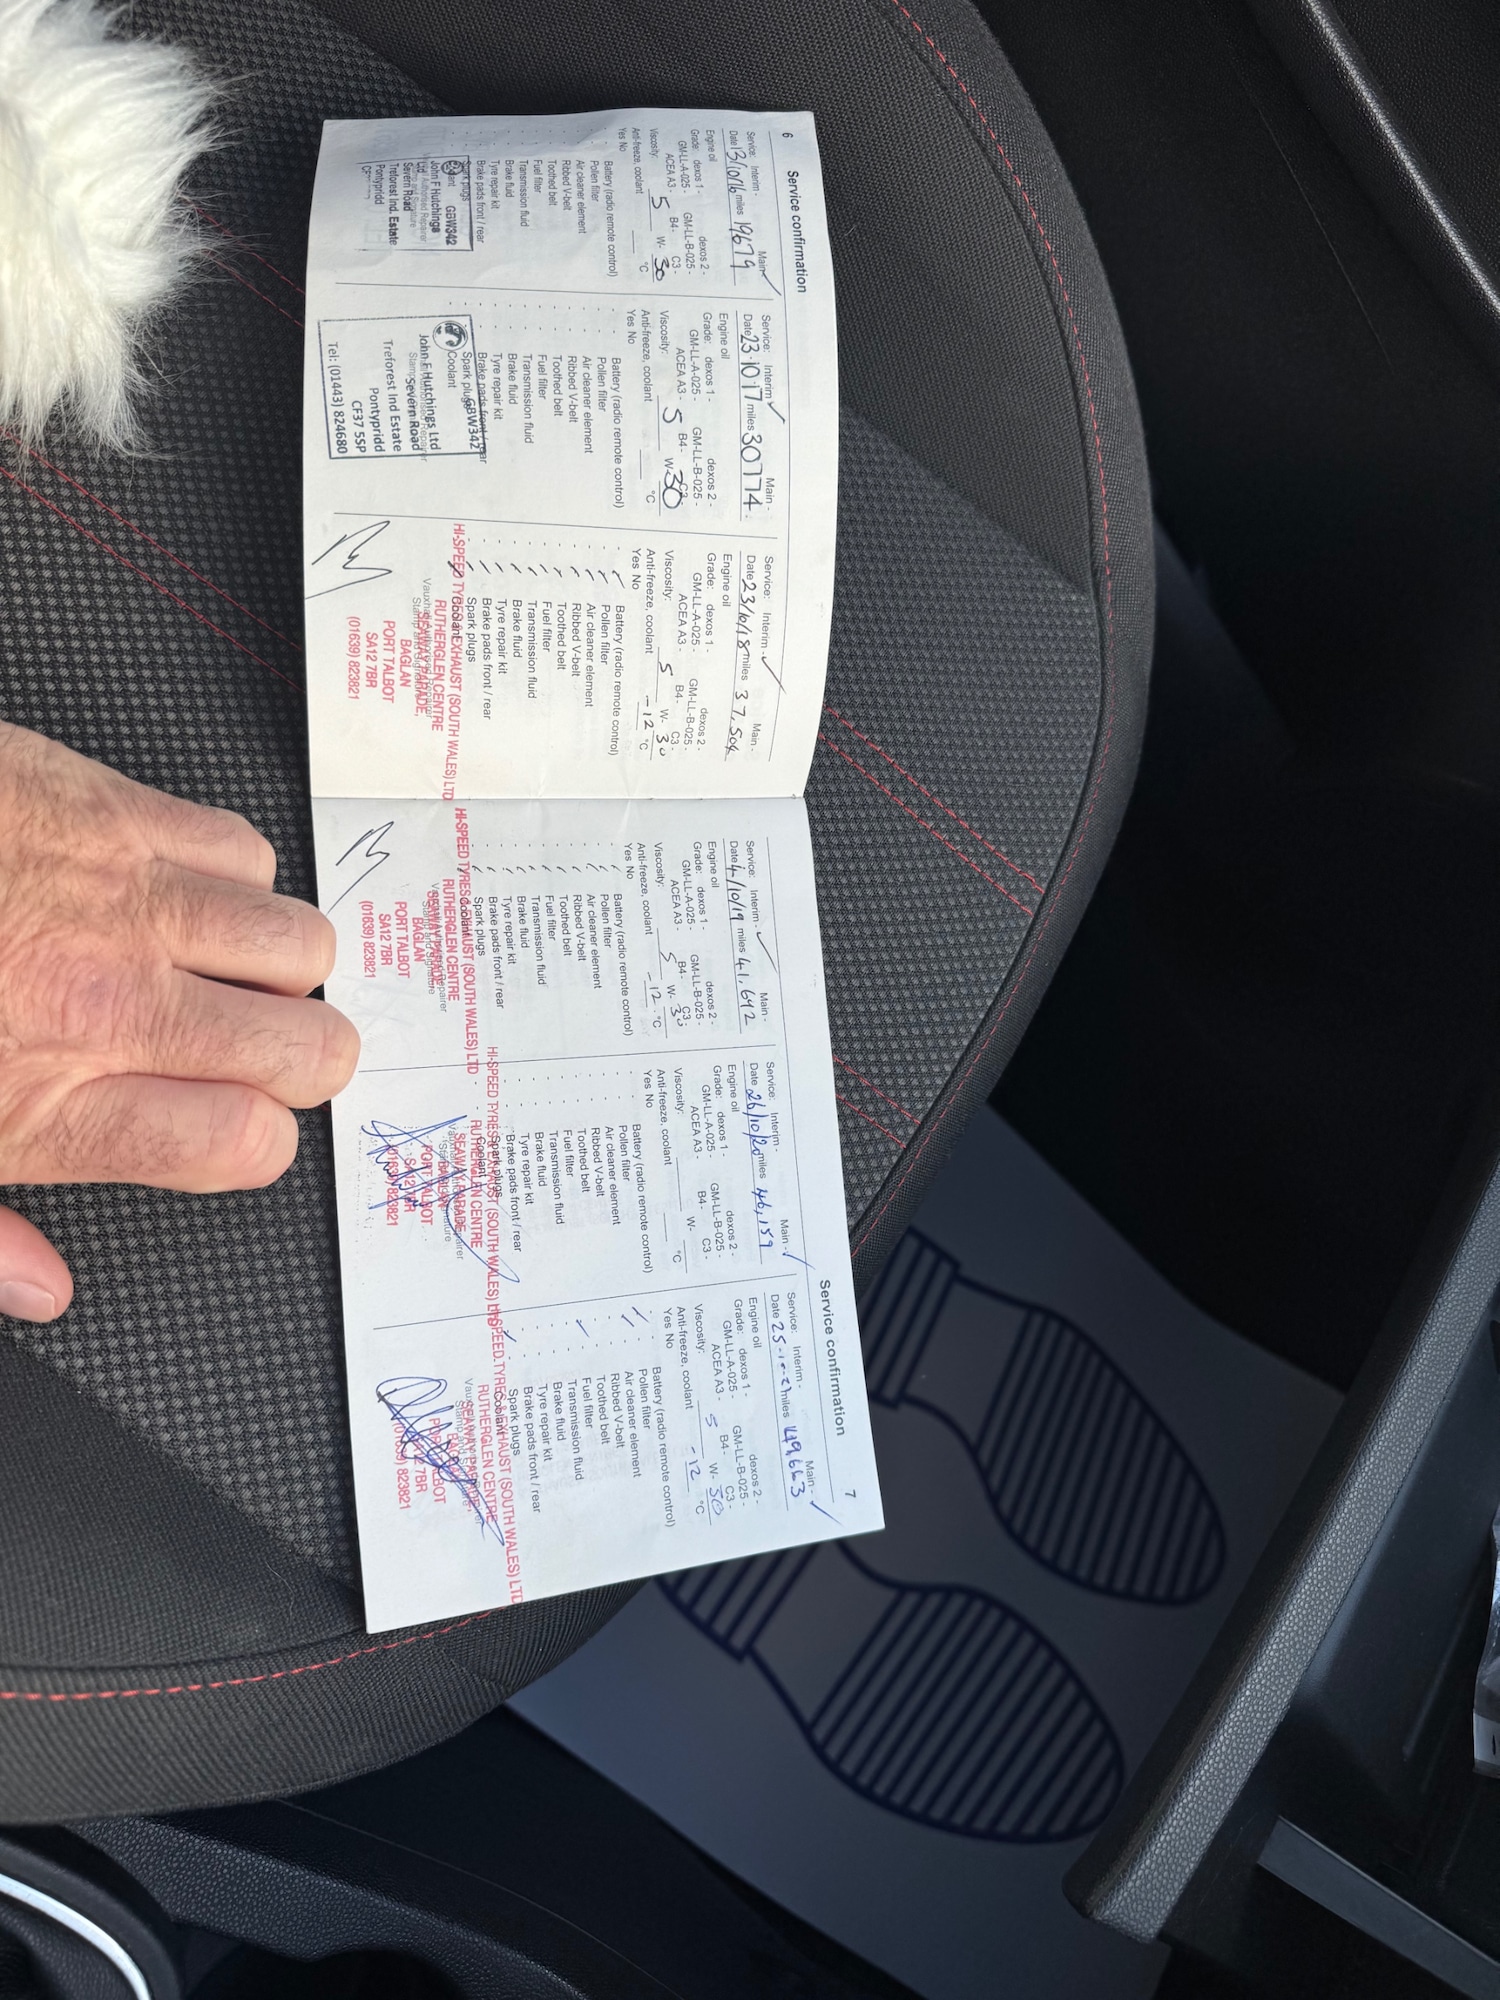 6
Service confirmation
Service: Interim - Main ✓
Date 13/10/16 miles 19679
Engine oil
Grade: dexos 1 - dexos 2 -
GM-LL-A-025 - GM-LL-B-025 -
ACEA A3 - B4 - C3 -
Viscosity: 5 W- 30
Anti-freeze, coolant °C
Yes No
Battery (radio remote control)
Pollen filter
Air cleaner element
Ribbed V-belt
Toothed belt
Fuel filter
Transmission fluid
Brake fluid
Tyre repair kit
Brake pads front / rear
Spark plugs
GBW342
John F Hutchings
Ltd
Severn Road
Treforest Ind. Estate
Pontypridd
Service: Interim ✓ Main -
Date 23.10.17 miles 30774
Engine oil
Grade: dexos 1 - dexos 2 -
GM-LL-A-025 - GM-LL-B-025 -
ACEA A3 - B4 - C3 -
Viscosity: 5 W 30
Anti-freeze, coolant °C
Yes No
Battery (radio remote control)
Pollen filter
Air cleaner element
Ribbed V-belt
Toothed belt
Fuel filter
Transmission fluid
Brake fluid
Tyre repair kit
Brake pads front / rear
Spark plugs
Coolant
GBW342
John F Hutchings Ltd
Severn Road
Treforest Ind Estate
Pontypridd
CF37 5SP
Tel: (01443) 824680
Service: Interim - ✓ Main -
Date 23/10/18 miles 37,504
Engine oil
Grade: dexos 1 - dexos 2 -
GM-LL-A-025 - GM-LL-B-025 -
ACEA A3 - B4 - C3 -
Viscosity: 5 W- 30
Anti-freeze, coolant -12 °C
Yes No
Battery (radio remote control)
Pollen filter
Air cleaner element
Ribbed V-belt
Toothed belt
Fuel filter
Transmission fluid
Brake fluid
Tyre repair kit
Brake pads front / rear
Spark plugs
Coolant
HI-SPEED TYRES & EXHAUST (SOUTH WALES) LTD
RUTHERGLEN CENTRE
SEAWAY PARADE,
BAGLAN
PORT TALBOT
SA12 7BR
(01639) 823821
7
Service confirmation
Service: Interim - ✓ Main -
Date 4/10/19 miles 41,642
Engine oil
Grade: dexos 1 - dexos 2 -
GM-LL-A-025 - GM-LL-B-025 -
ACEA A3 - B4 - C3 -
Viscosity: 5 W- 30
Anti-freeze, coolant -12 °C
Yes No
Battery (radio remote control)
Pollen filter
Air cleaner element
Ribbed V-belt
Toothed belt
Fuel filter
Transmission fluid
Brake fluid
Tyre repair kit
Brake pads front / rear
Spark plugs
Coolant
HI-SPEED TYRES & EXHAUST (SOUTH WALES) LTD
RUTHERGLEN CENTRE
SEAWAY PARADE
BAGLAN
PORT TALBOT
SA12 7BR
(01639) 823821
Service: Interim - Main - ✓
Date 26/10/20 miles 46,159
Engine oil
Grade: dexos 1 - dexos 2 -
GM-LL-A-025 - GM-LL-B-025 -
ACEA A3 - B4 - C3 -
Viscosity: W-
Anti-freeze, coolant °C
Yes No
Battery (radio remote control)
Pollen filter
Air cleaner element
Ribbed V-belt
Toothed belt
Fuel filter
Transmission fluid
Brake fluid
Tyre repair kit
Brake pads front / rear
Spark plugs
Coolant
HI-SPEED TYRES & EXHAUST (SOUTH WALES) LTD
RUTHERGLEN CENTRE
SEAWAY PARADE
BAGLAN
PORT TALBOT
SA12 7BR
(01639) 823821
Service: Interim - Main - ✓
Date miles 49,663
Engine oil
Grade: dexos 1 - dexos 2 -
GM-LL-A-025 - GM-LL-B-025 -
ACEA A3 - B4 - C3 -
Viscosity: 5 W- 30
Anti-freeze, coolant -12 °C
Yes No
Battery (radio remote control)
Pollen filter
Air cleaner element
Ribbed V-belt
Toothed belt
Fuel filter
Transmission fluid
Brake fluid
Tyre repair kit
Brake pads front / rear
Spark plugs
Coolant
HI-SPEED TYRES & EXHAUST (SOUTH WALES) LTD
RUTHERGLEN CENTRE
SEAWAY PARADE,
BAGLAN
PORT TALBOT
SA12 7BR
(01639) 823821